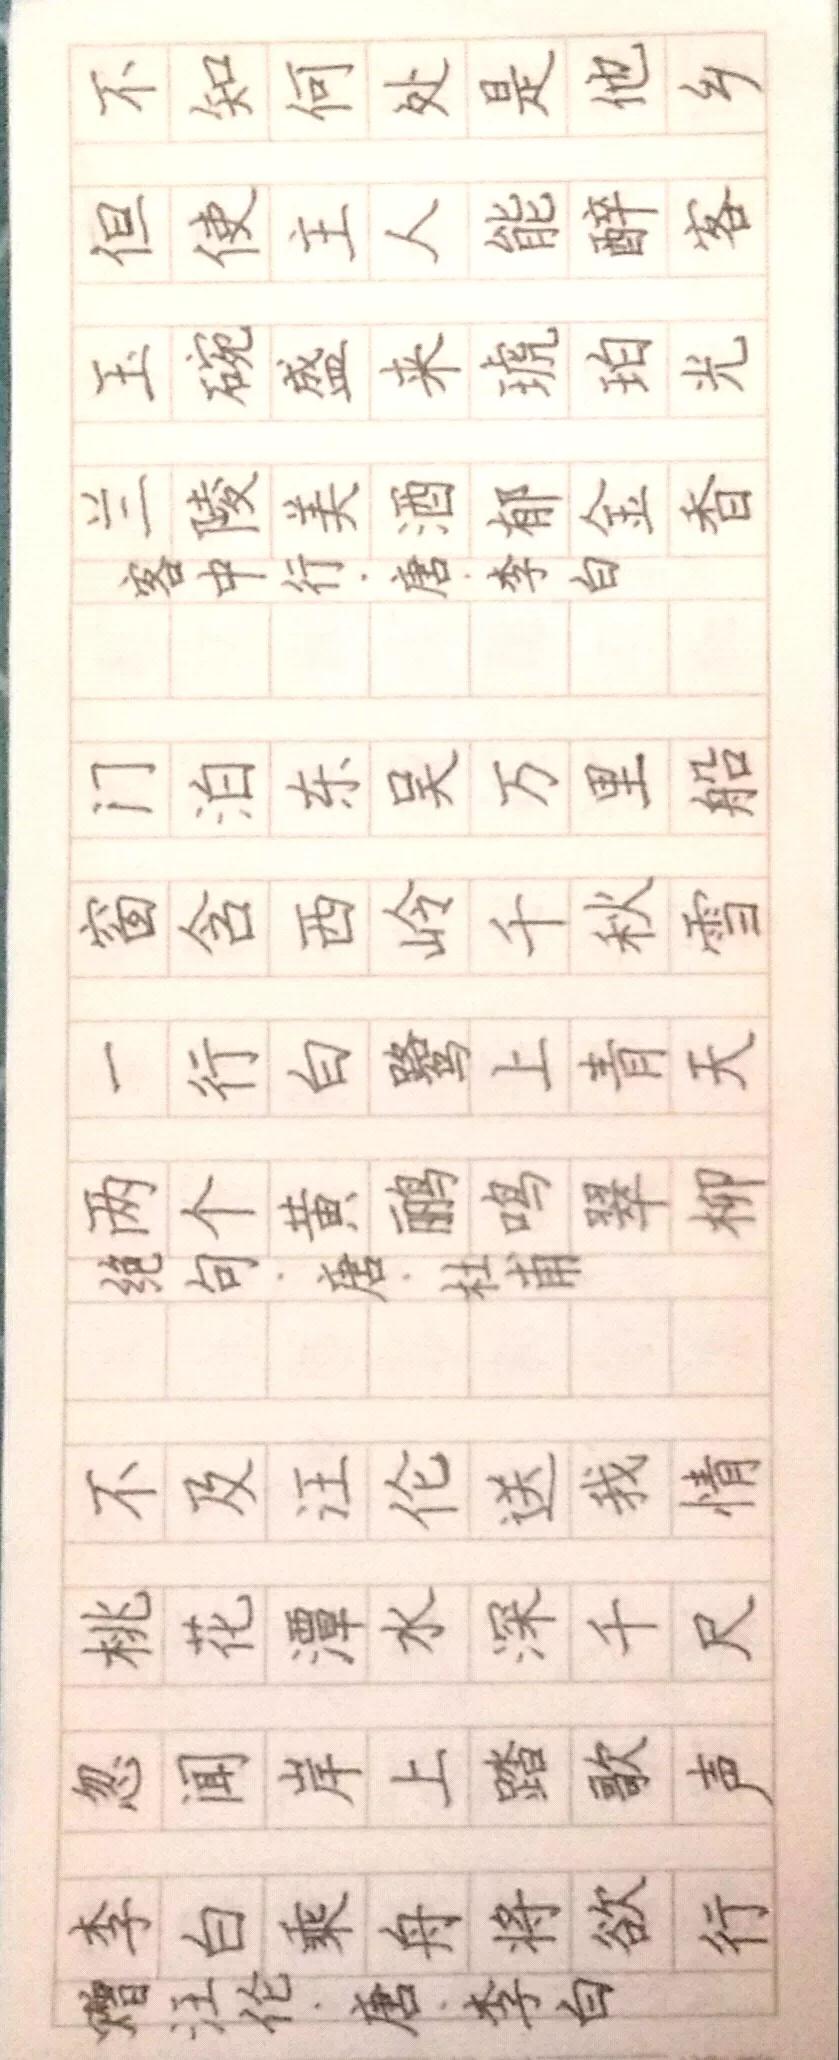 赠汪伦·唐·李白
李白乘舟将欲行
忽闻岸上踏歌声
桃花潭水深千尺
不及汪伦送我情
绝句·唐·杜甫
两个黄鹂鸣翠柳
一行白鹭上青天
窗含西岭千秋雪
门泊东吴万里船
客中行·唐·李白
兰陵美酒郁金香
玉碗盛来琥珀光
但使主人能醉客
不知何处是他乡